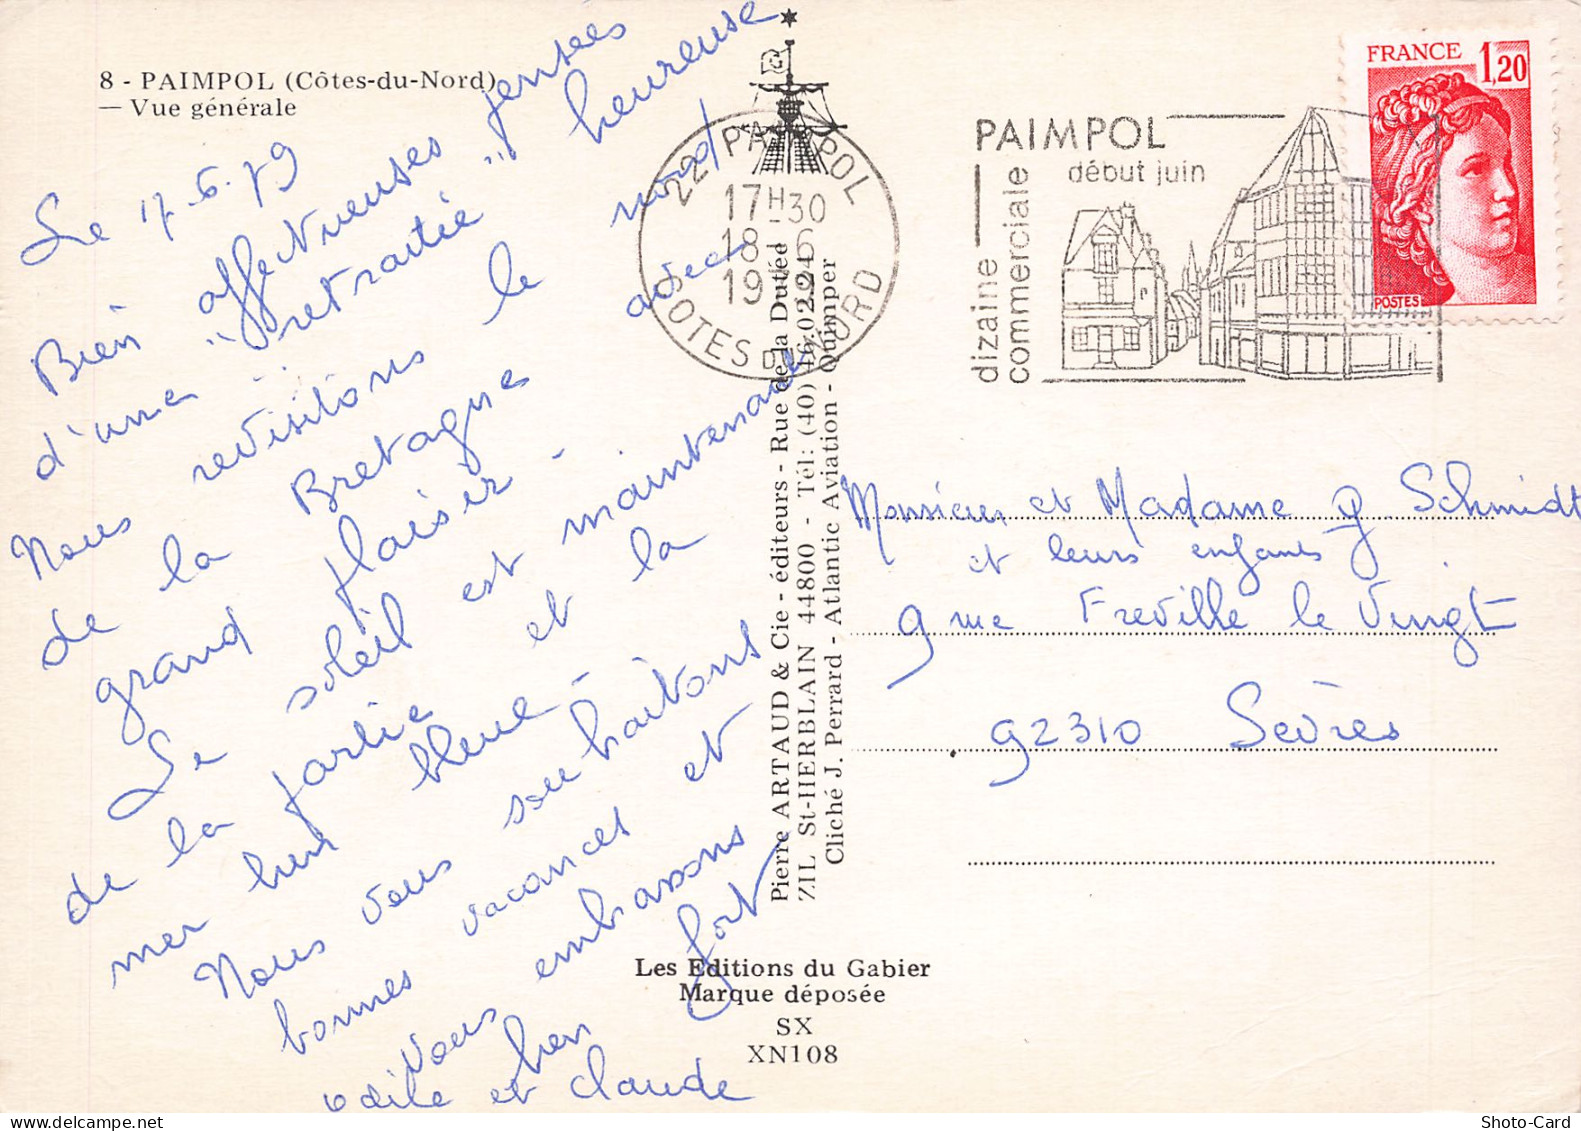 8 - PAIMPOL (Côtes-du-Nord)
— Vue générale
Le 17.6.79
Bien affectueuses pensées
d'une "retraitée" heureuse
Nous revisitons le nord
de la Bretagne avec
grand plaisir -
Le soleil est maintenant
de la partie et la
mer bien bleue -
Nous vous souhaitons
bonnes vacances et
vous embrassons
bien fort
Odile et Claude
22 PAIMPOL
17H30
18-6
1979
COTES DU NORD
PAIMPOL
début juin
dizaine
commerciale
FRANCE 1,20
POSTES
Pierre ARTAUD & Cie - éditeurs - Rue de la Dutée
ZIL St-HERBLAIN 44800 - Tél: (40)
Cliché J. Perrard - Atlantic Aviation - Quimper
Monsieur et Madame Schmidt
et leurs enfants
9 rue Freville le Vingt
92310 Sèvres
Les Editions du Gabier
Marque déposée
SX
XN108
Shoto-Card